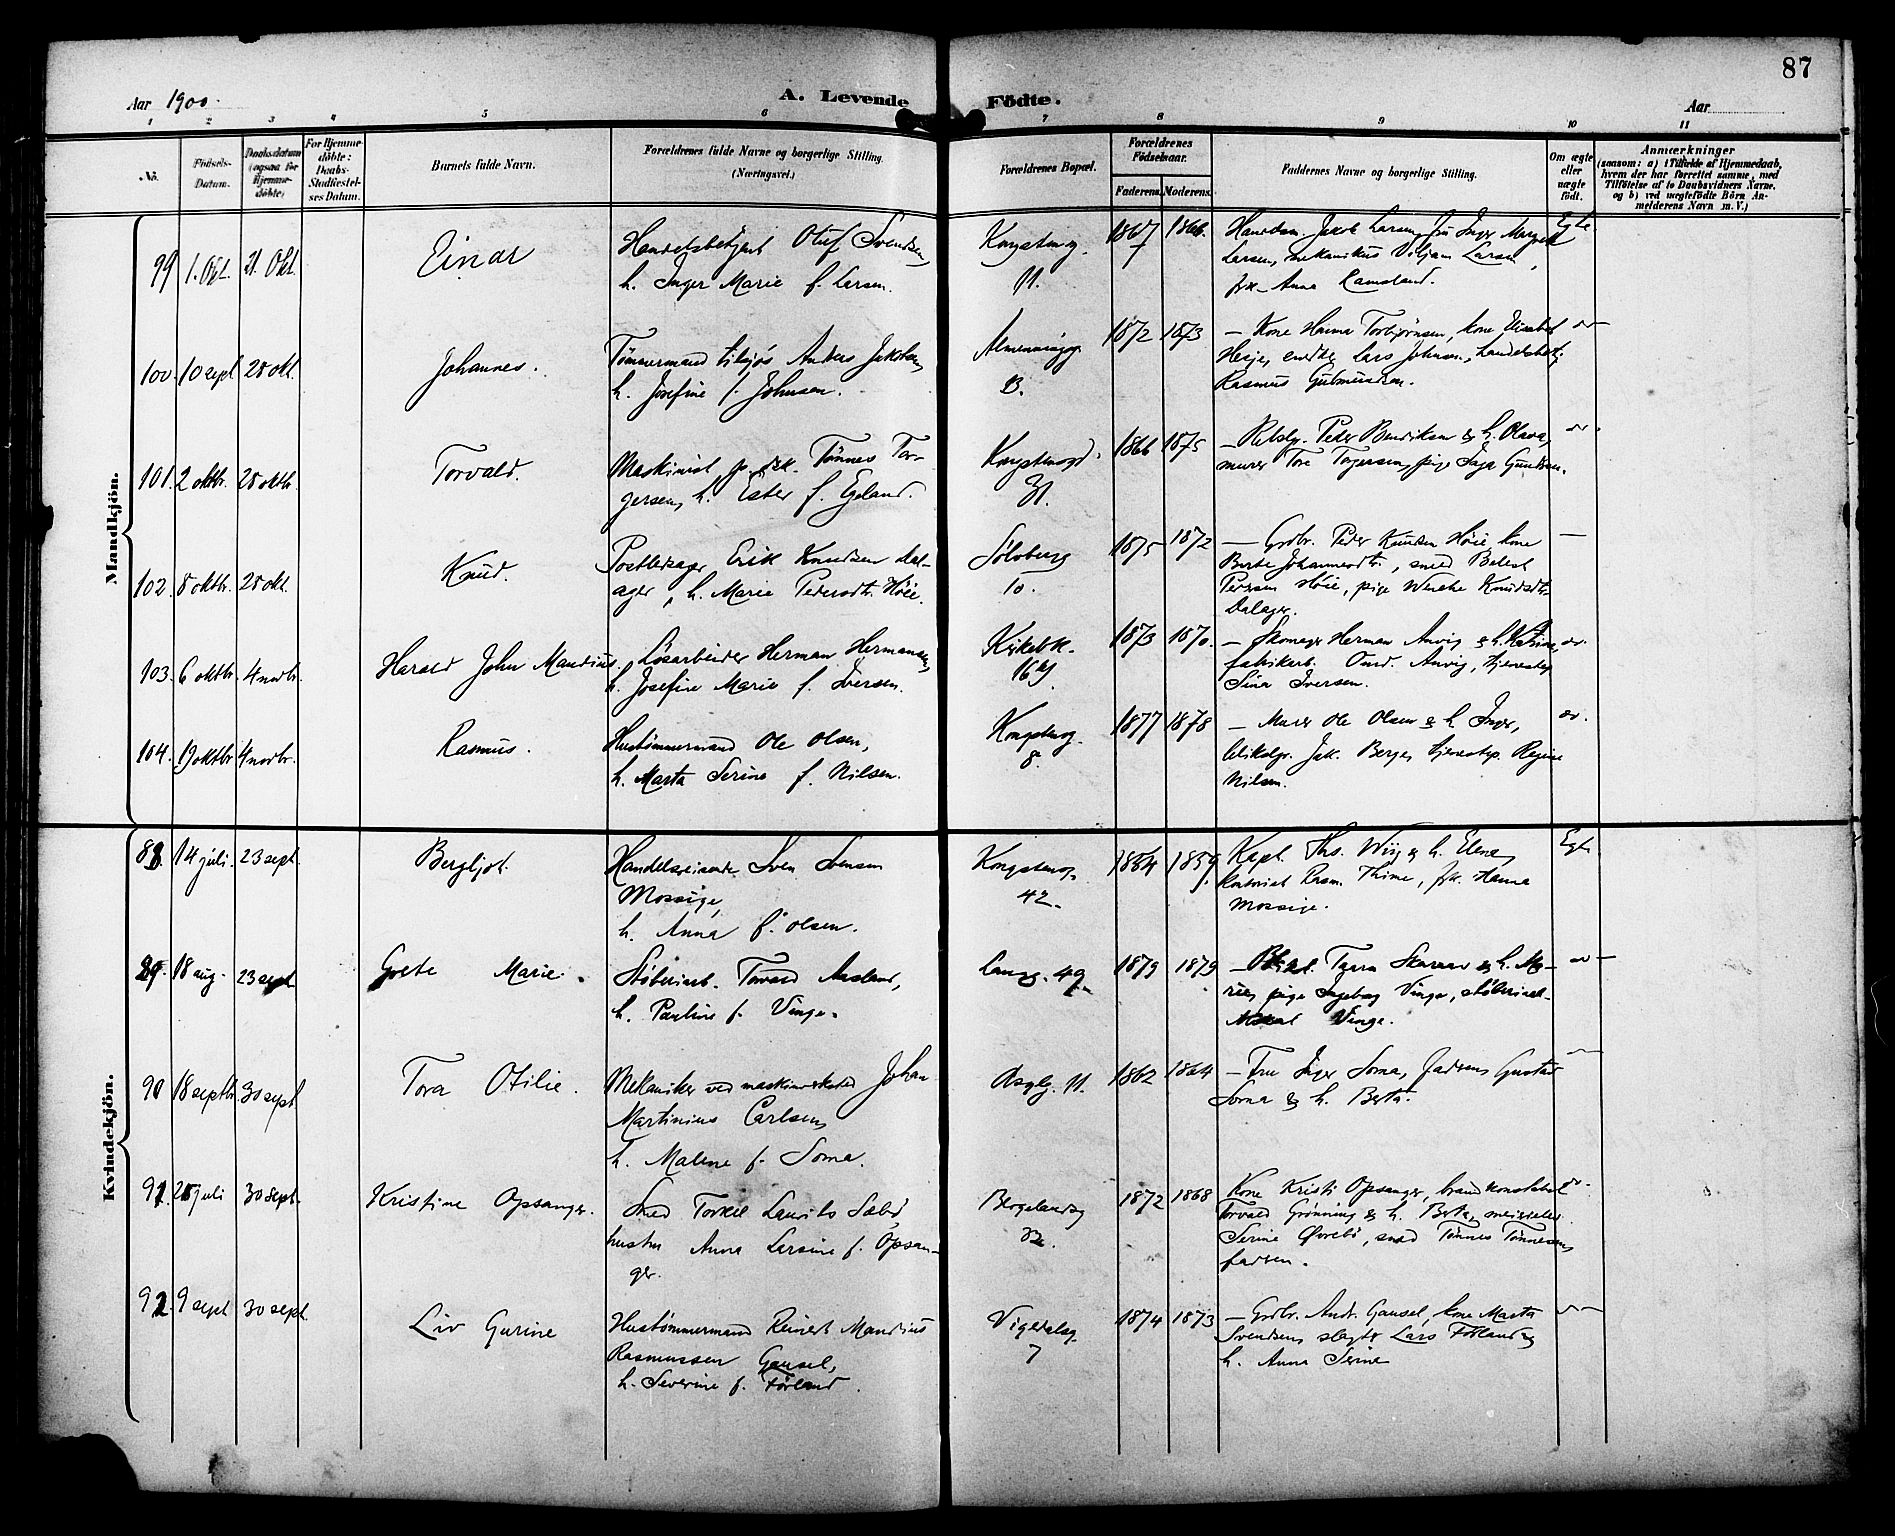 87
Aar 1900.
A. Levende Födte.
Aar
1 2 3 4 5 6 7 8 9 10 11
No.
Födsels-Datum.
Daabsdatum (ogsaa for Hjemmedöbte)
For Hjemmedöbte: Daabs-Stadfæstelses Datum.
Barnets fulde Navn.
Forældrenes fulde Navne og borgerlige Stilling.
(Næringsvei.)
Forældrenes Bopæl.
Forældrenes Födselsaar.
Faderens. Moderens.
Faddernes Navne og borgerlige Stilling.
Om ægte eller uægte födt.
Anmærkninger
(saasom: a) i Tilfælde af Hjemmedaab,
hvem der har forrettet samme, med
Tilföielse af to Daabsvidners Navne,
og b) ved uægtefödte Börn An-
melderens Navn m. V.)
Mandkjön.
99 1. Okt. 21. Okt.
Einar
Handelsbetjent Oluf Svendsen,
h. Inger Marie f. Larsen.
Kongstensg.
11.
1867 1866.
Jakob Larsen, Inger
Larsen, mekanikus Viljam Larsen,
frk. Anna Ramsland.
Egte
100. 10 sept 28 okt.
Johannes.
Tømmermand tilsjøs Anders Jakobsen,
h. Josefine f. Johnsen.
Almenningsg
13.
1872 1873
— Kone Hanna Torbjørnsen, kone Elisabet
Lars Johnsen,
Rasmus Gudmundsen.
101. 2 oktbr. 28 oktb.
Torvald.
Maskinist Tønnes Tor-
gersen, h. Ester f. Egeland.
Kongstensgd.
31.
1866 1875
— Peder Bendiksen & h. Olava,
murer Tore Torgersen, pige Inga
102. 8 oktbr. 28 okt.
Knud.
Postledsager Erik Knudsen Dal-
ager, h. Marie Pedersdtr. Høie.
Sølvberg
10.
1875 1872
— Grdbr. Peder Knudsen Høie kone
Berte Johannesdtr, smed
Pedersen Høie, pige Wenche Knudsdtr.
Dalager.
—
103. 6 oktbr 4 novbr.
Harald John Mandius.
Løsarbeider Herman Hermansen,
h. Josefine Marie f. Iversen.
Kirkebk.
1873 1870.
— Skomager Herman Anvig & h. Katrine,
fabrikarb. Anvig, tjenestep
Sina Iversen.
104. 19 oktbr 4 novbr.
Rasmus.
Hustømmermand Ole Olsen,
h. Marta Serine f. Nilsen.
Kongstensg.
8.
1877 1878
— Murer Ole Olsen & h Inger,
blikslgr. Jak. Berge, tjenestep. Regine
Nilsen.
Kvindekjön.
88 14 juli. 23 sept.
Bergljot.
Handelsreisende Sven Svensen
Mossige,
h. Anna f. Olsen.
Kongstensg.
42.
1854 1859.
Kapt. Ths. Wiig & h. Elene,
kontorist Rasm. Thime, frk. Hanna
Mossige.
Egte
89. 18 aug. 23 sept
Grete Marie.
Støberiarb. Torvard Aasland,
h. Pauline f. Vinge.
Langg. 49.
1879 1879
— Skaraar & h. Ma-
rie, pige Ingeborg Vinge,
Vinge.
90 18 septbr. 30 sept
Tora Otilie.
Mekaniker ved maskinverksted Johan
Martinius Carlsen,
h. Malene f. Soma.
Asylg. 11.
1862 1864
— Frue Inger Soma, Gustav
Soma & h. Berta.
91. 28 juli 30 sept.
Kristine Opsanger.
Smed Torkel Laurits Sæbø,
hustru Anna Larsine f. Opsan-
ger.
1872 1868
Kone Kristi Opsanger, brandkonstabel
Torvald Grønning & h. Berta,
Serine Øvrebø, smed Tønnes Tønnesen,
fadren.
92. 9 sept 30 sept.
Liv Gurine
Hustømmermand Reinert Mandius
Rasmussen Gausel,
h. Severine f. Førland.
Vigedalsg.
7
1874 1873
— Grdbr. Andr. Gausel, kone Marta
Svendsen, Lars Førland &
h. Anna Serine